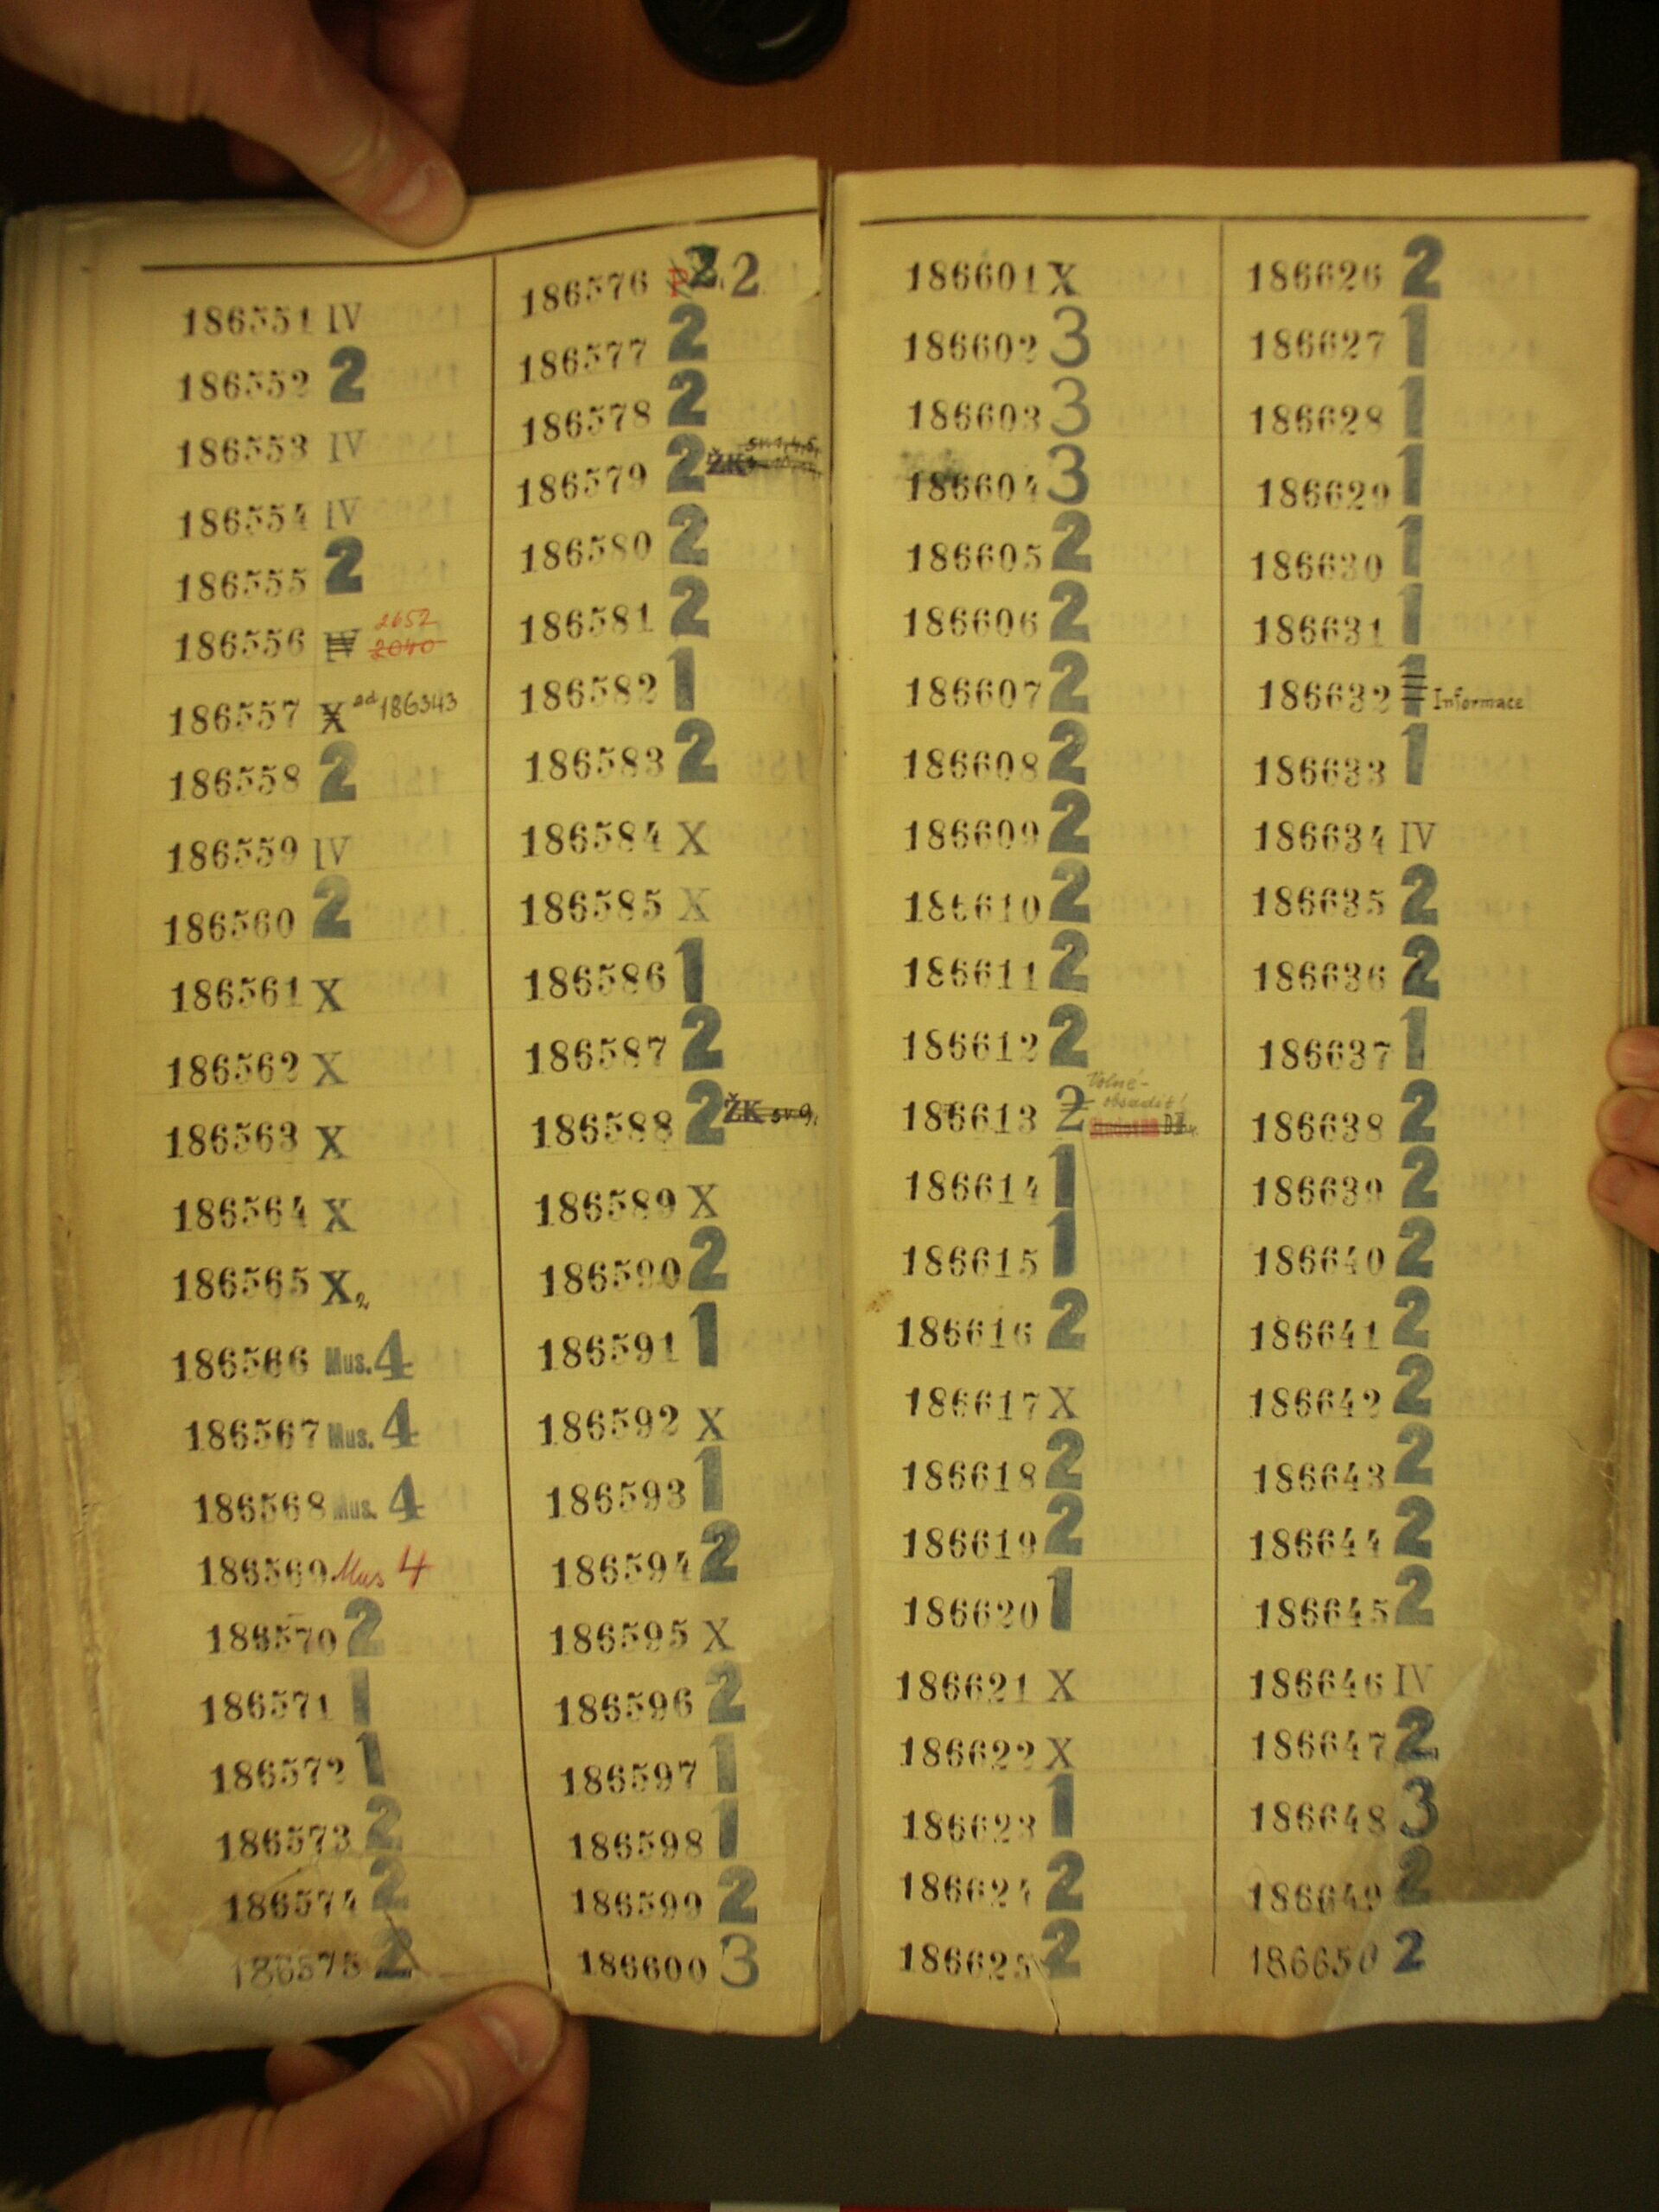 186551 IV
186552 2
186553 IV
186554 IV
186555 2
186556 IV 2652
2040
186557 X ad 186343
186558 2
186559 IV
186560 2
186561 X
186562 X
186563 X
186564 X
186565 X2
186566 Mus. 4
186567 Mus. 4
186568 Mus. 4
186569 Mus 4
186570 2
186571 1
186572 1
186573 2
186574 2
186575 2
186576 2 2
186577 2
186578 2
186579 2 ŽK
186580 2
186581 2
186582 1
186583 2
186584 X
186585 X
186586 1
186587 2
186588 2 ŽK sv. 9,
186589 X
186590 2
186591 1
186592 X
186593 1
186594 2
186595 X
186596 2
186597 1
186598 1
186599 2
186600 3
186601 X
186602 3
186603 3
186604 3
186605 2
186606 2
186607 2
186608 2
186609 2
186610 2
186611 2
186612 2
186613 2 Volné-
obsadit!
186614 1
186615 1
186616 2
186617 X
186618 2
186619 2
186620 1
186621 X
186622 X
186623 1
186624 2
186625 2
186626 2
186627 1
186628 1
186629 1
186630 1
186631 1
186632 1 Informace
186633 1
186634 IV
186635 2
186636 2
186637 1
186638 2
186639 2
186640 2
186641 2
186642 2
186643 2
186644 2
186645 2
186646 IV
186647 2
186648 3
186649 2
186650 2